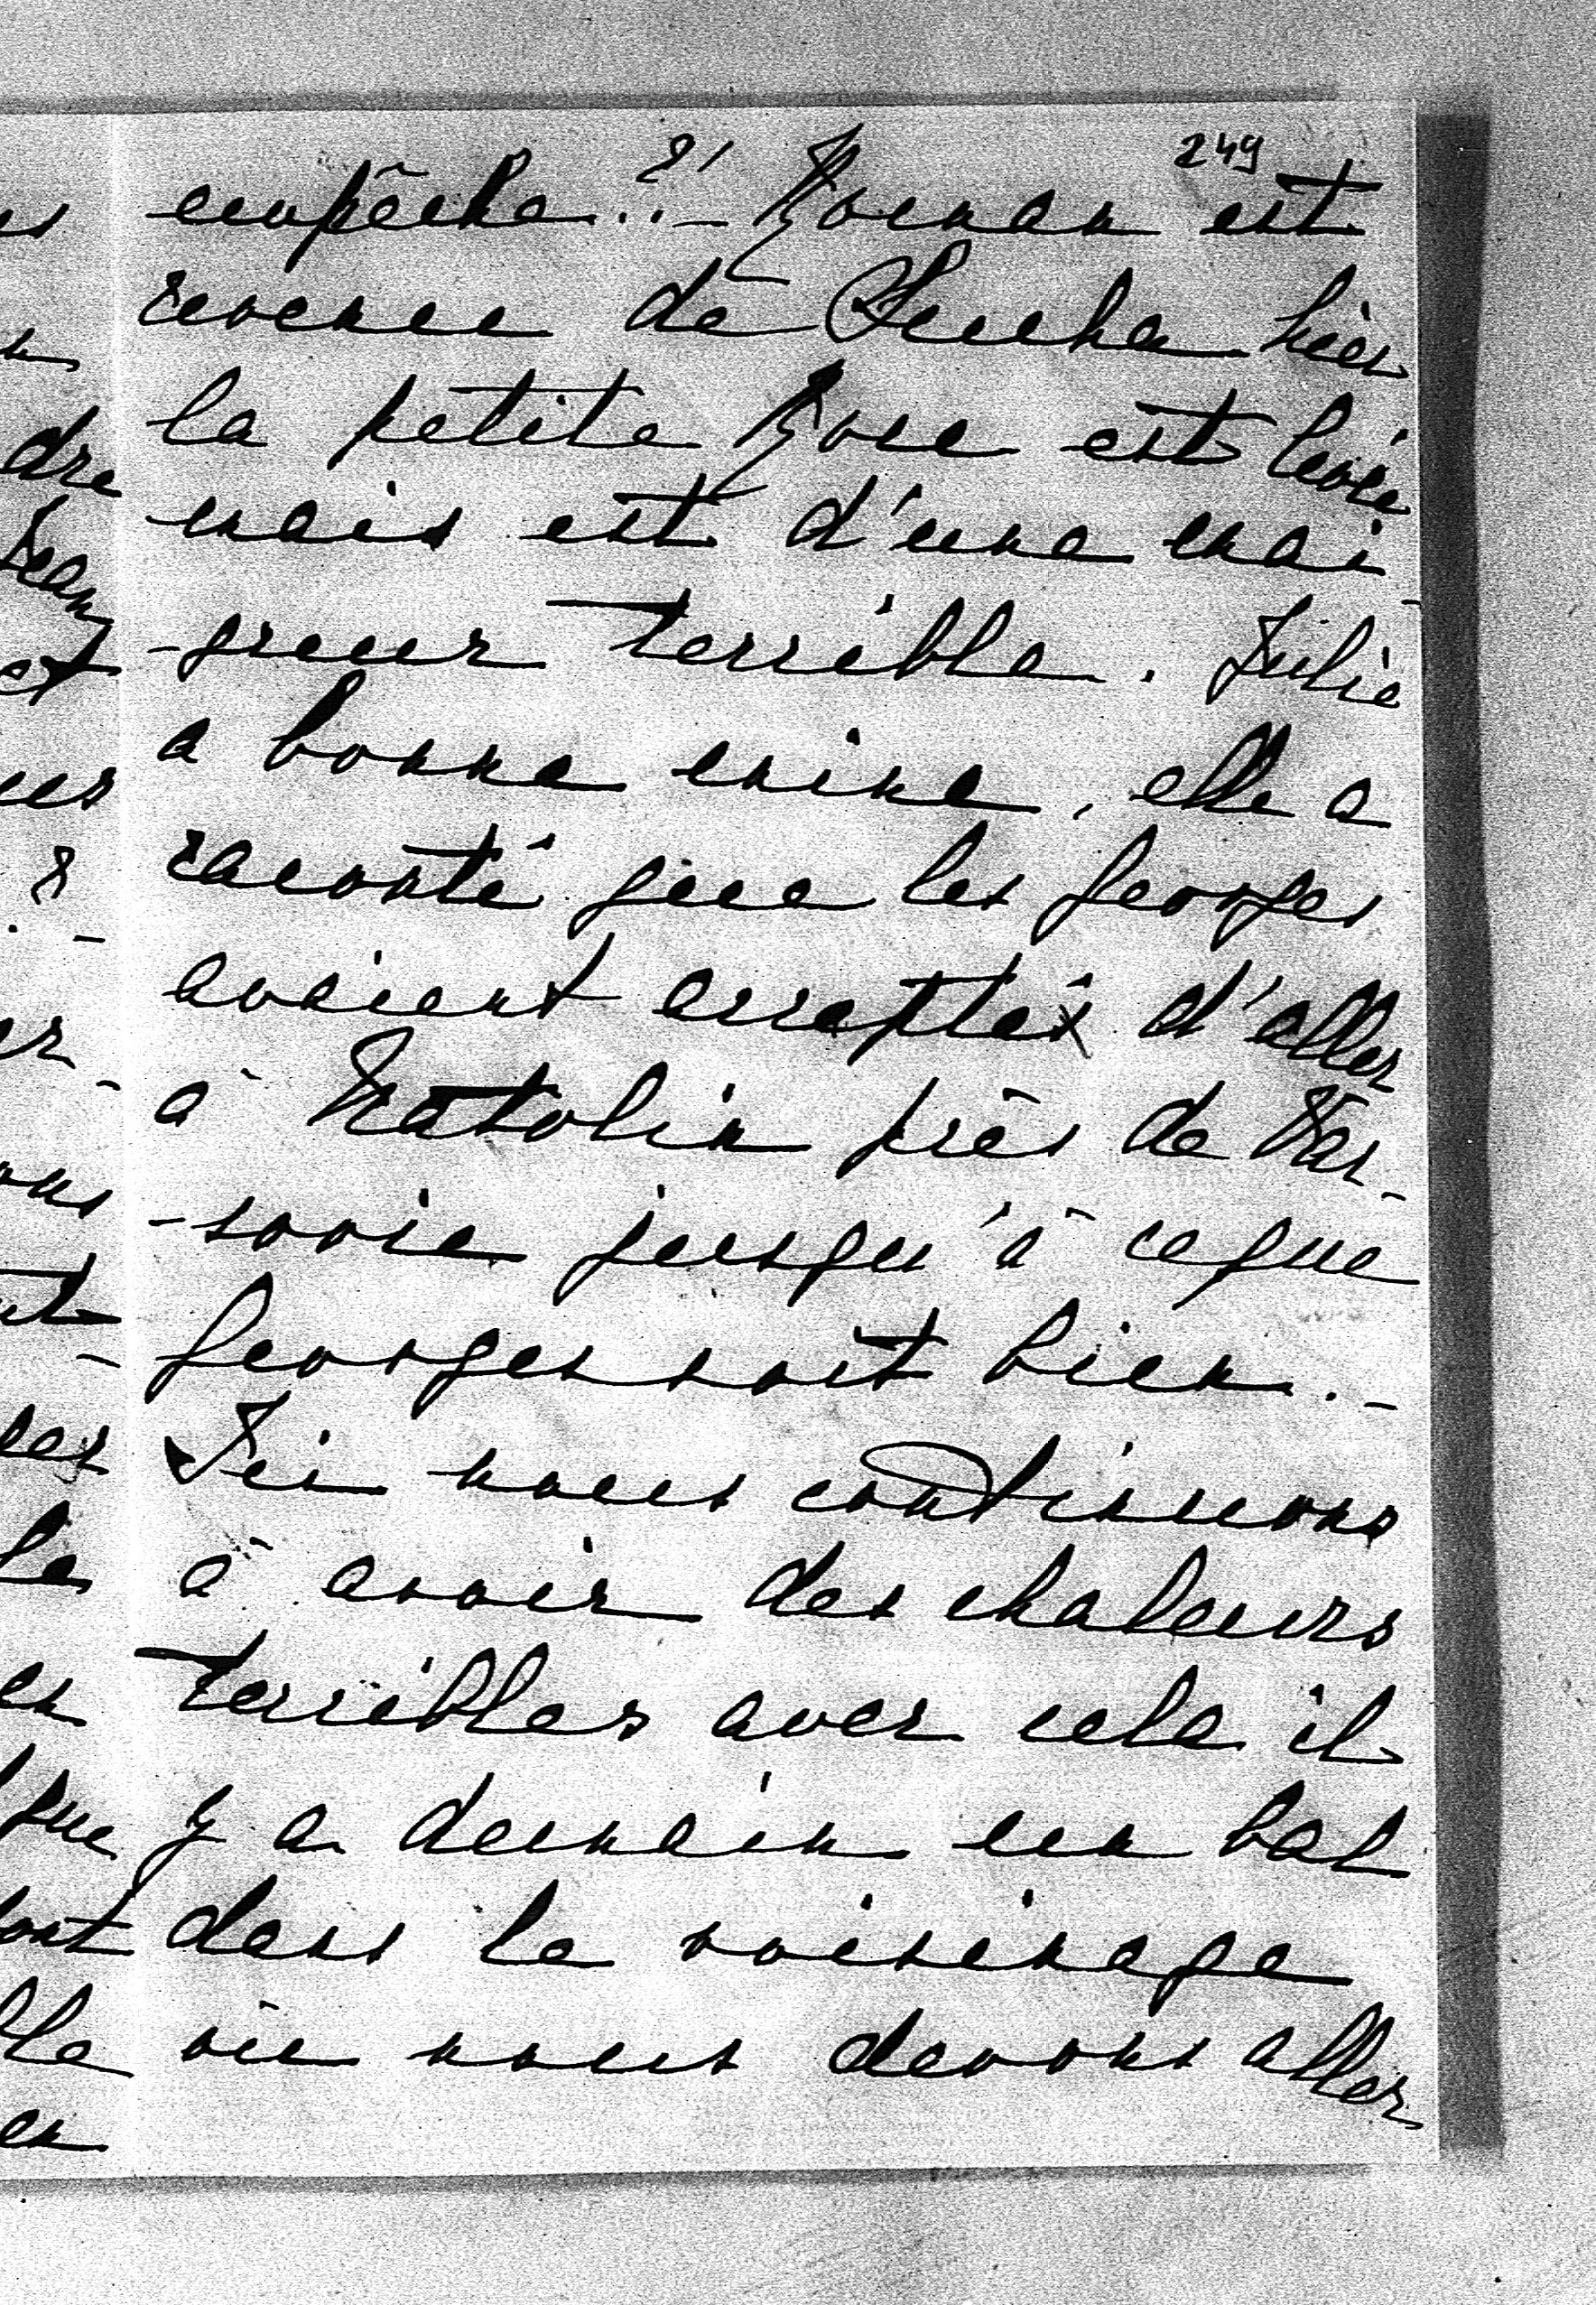 249
empêche..?! – Roman est
revenu de Slucka hier
la petite Rose est levée
mais est d'une mai
-greur terrible. Julie
a bonne mine, elle a
raconté que les Georges
avaient acceptés d'aller
à Natolin près de Var-
-sovie jusqu'à ce que
Georges soit bien. –
Ici nous continuons
à avoir des chaleurs
terribles avec cela il
y a demain un bal
dans le voisinage
où nous devons aller